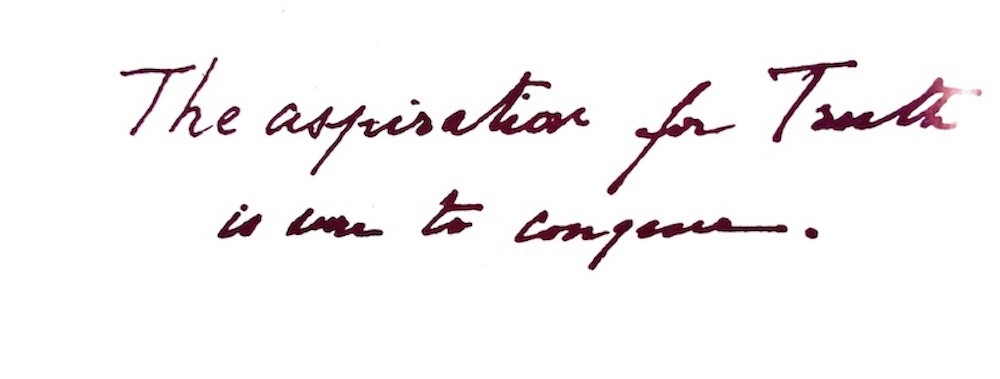 The aspiration for Truth
is sure to conquer.